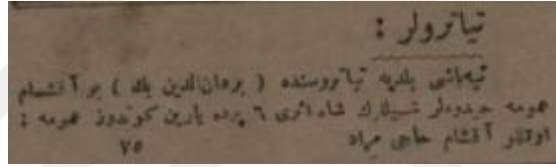 تیاترولر :
تپه‌باشی بلدیه تیاتروسنده ( برهان‌الدین بك ) بو آقشام
عمومه حیدودلر شیللرك شاه اثری ٦ پرده یارین كوندوز عمومه :
اوتللو آقشام حاجی مراد
٧٥